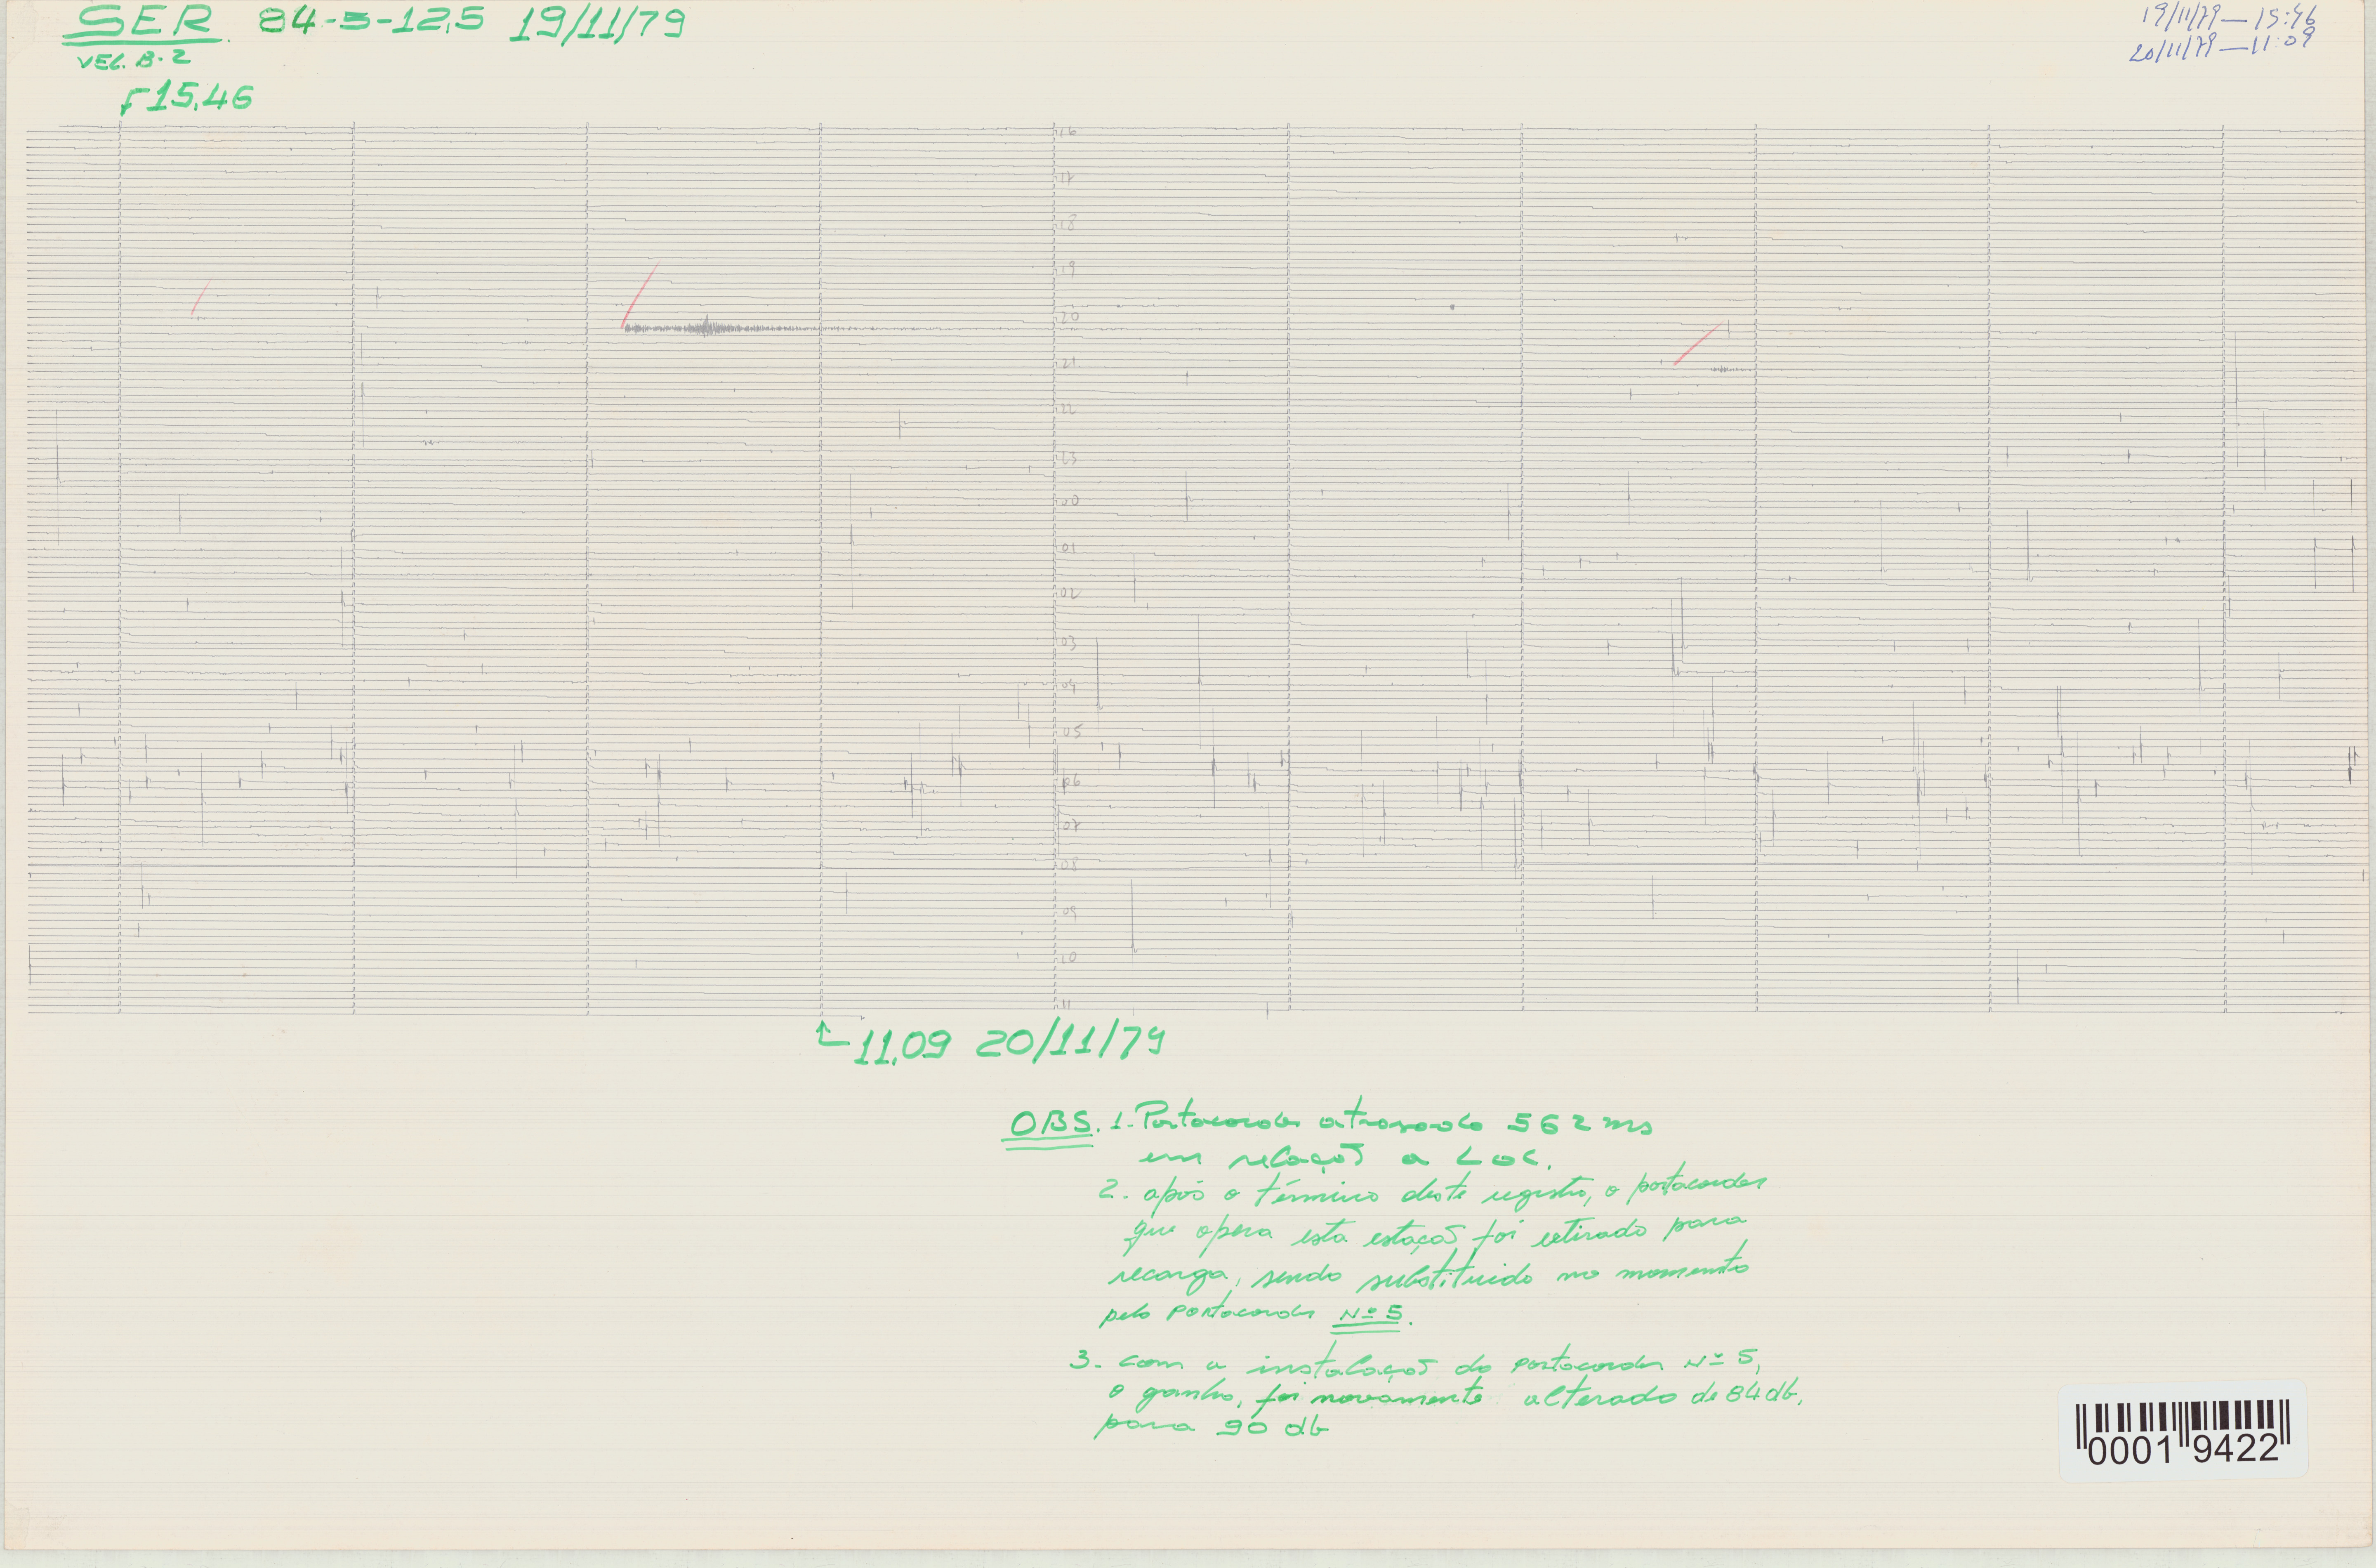 SER 84-5-12,5 19/11/79
19/11/79 — 15:46
VEL. B.2
20/11/79 — 11:09
15.46
16
17
18
19
20
21
22
23
00
01
02
03
04
05
06
07
08
09
10
11
11.09 20/11/79
OBS. 1. Portacorder atrasado 562 ms
em relação a LOC.
2. após o término deste registro, o portacorder
que opera esta estação foi retirado para
recarga, sendo substituido no momento
pelo portacorder Nº 5.
3. com a instalação do portacorder Nº 5,
o ganho, foi novamente alterado de 84 db,
para 90 db
0001 9422